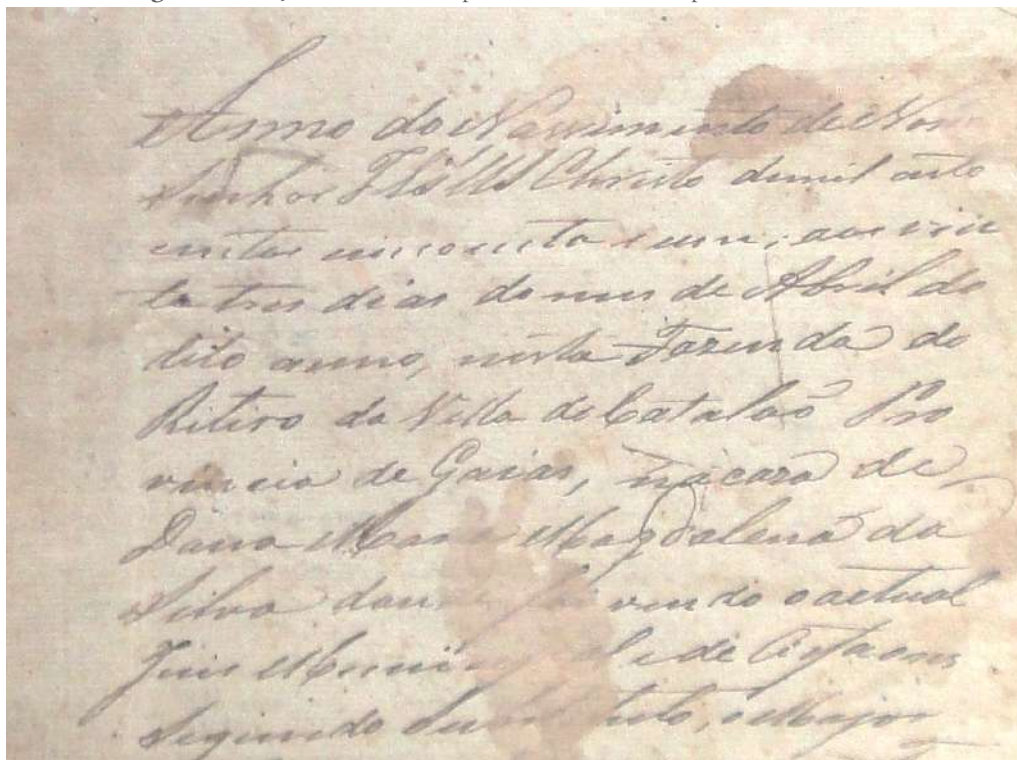 Anno do Nascimento de Nosso
Senhor JESUS Christo de mil oito
centos cincoenta e um, aos vin
te tres dias do mes de Abril do
dito anno, nesta Fazenda do
Ritiro da Villa de Catalaõ Pro
vincia de Goias, na caza de
Dona Maria Magdalena da
Silva foi vindo o actual
Juis Municipal e de Orfaons
segundo Substituto, o Major